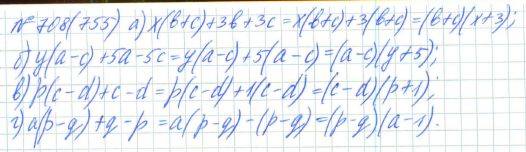 № 708(755) а) x(b+c)+3b+3c=x(b+c)+3(b+c)=(b+c)(x+3);
б) y(a-c)+5a-5c=y(a-c)+5(a-c)=(a-c)(y+5);
в) p(c-d)+c-d=p(c-d)+1(c-d)=(c-d)(p+1);
г) a(p-q)+q-p=a(p-q)-(p-q)=(p-q)(a-1).